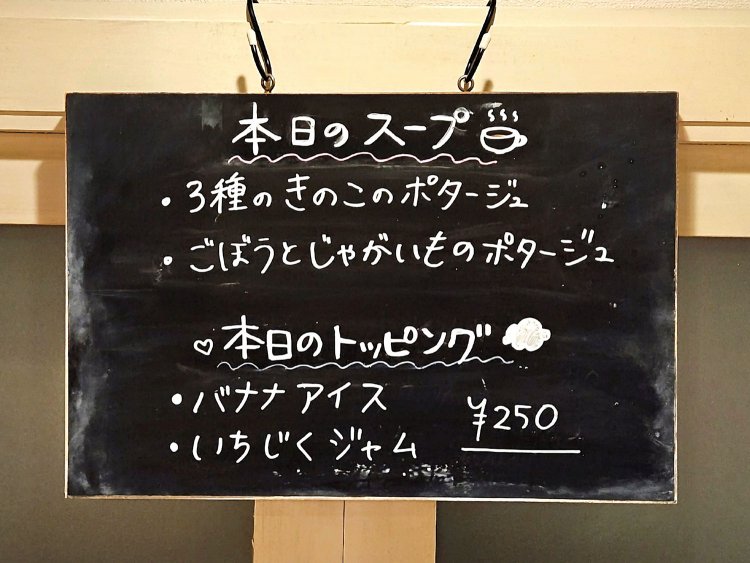 本日のスープ
・3種のきのこのポタージュ
・ごぼうとじゃがいものポタージュ
♡本日のトッピング
・バナナアイス
・いちじくジャム
¥250